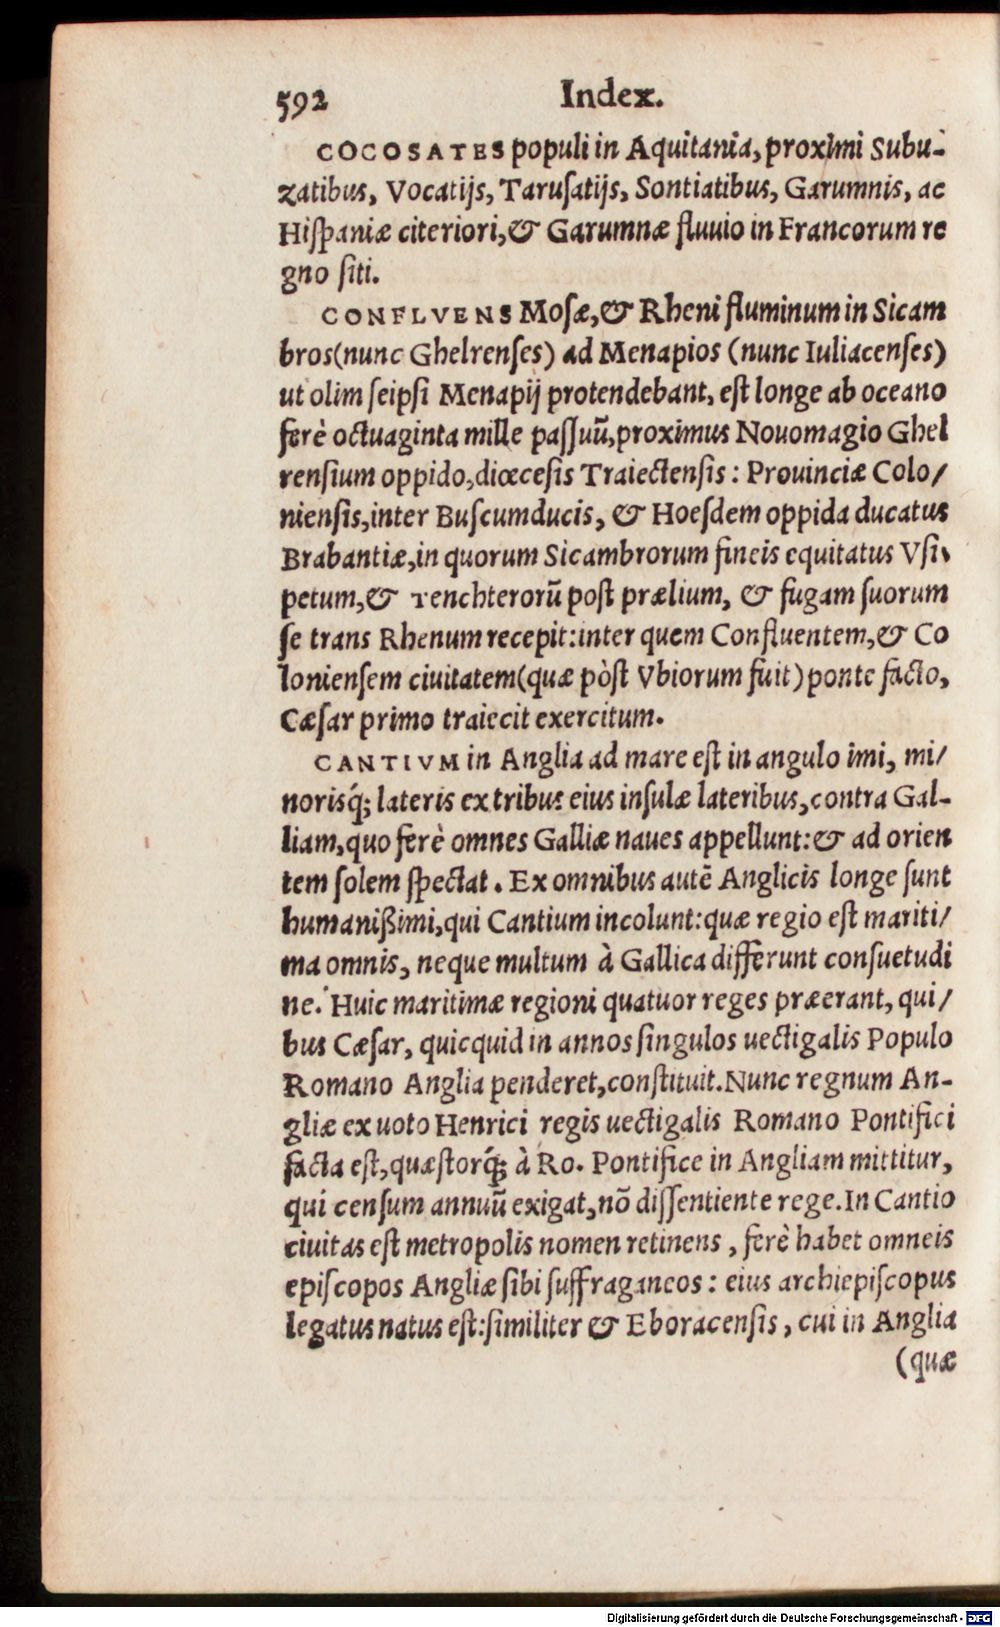 592 Index.
COCOSATES populi in Aquitania, proximi Subu-
zatibus, Vocatijs, Tarusatijs, Sontiatibus, Garumnis, ac
Hispaniæ citeriori, & Garumnæ fluuio in Francorum re
gno siti.
CONFLVENS Mosæ, & Rheni fluminum in Sicam
bros (nunc Ghelrenses) ad Menapios (nunc Iuliacenses)
ut olim seipsi Menapij protendebant, est longe ab oceano
ferè octuaginta mille passuũ, proximus Nouomagio Ghel
rensium oppido, diœcesis Traiectensis: Prouinciæ Colo/
niensis, inter Buscumducis, & Hoesdem oppida ducatus
Brabantiæ, in quorum Sicambrorum fineis equitatus Vsi,
petum, & Tenchterorũ post prælium, & fugam suorum
se trans Rhenum recepit: inter quem Confluentem, & Co
loniensem ciuitatem (quæ pòst Vbiorum fuit) ponte facto,
Cæsar primo traiecit exercitum.
CANTIVM in Anglia ad mare est in angulo imi, mi/
norisq́; lateris ex tribus eius insulæ lateribus, contra Gal-
liam, quo ferè omnes Galliæ naues appellunt: & ad orien
tem solem spectat. Ex omnibus autẽ Anglicis longe sunt
humanißimi, qui Cantium incolunt: quæ regio est mariti/
ma omnis, neque multum à Gallica differunt consuetudi
ne. Huic maritimæ regioni quatuor reges præerant, qui/
bus Cæsar, quicquid in annos singulos uectigalis Populo
Romano Anglia penderet, constituit. Nunc regnum An-
gliæ ex uoto Henrici regis uectigalis Romano Pontifici
facta est, quæstorq́; à Ro. Pontifice in Angliam mittitur,
qui censum annuũ exigat, nõ dissentiente rege. In Cantio
ciuitas est metropolis nomen retinens, ferè habet omneis
episcopos Angliæ sibi suffraganeos: eius archiepiscopus
legatus natus est: similiter & Eboracensis, cui in Anglia
(quæ
Digitalisierung gefördert durch die Deutsche Forschungsgemeinschaft - DFG